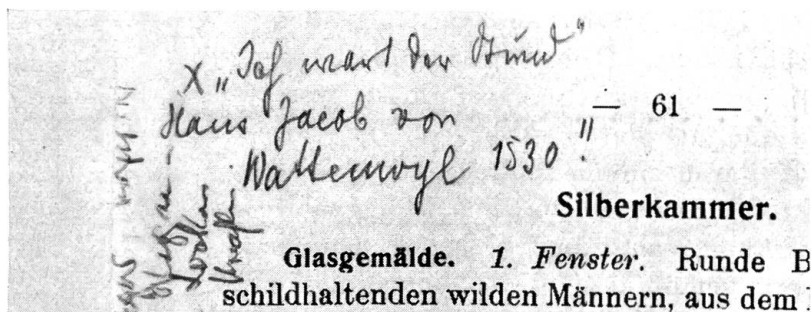 x „Ich wart der Stund"
— 61 —
Hans Jacob von
Wattenwyl 1530!"
Silberkammer.
Glasgemälde. 1. Fenster. Runde B
schildhaltenden wilden Männern, aus dem